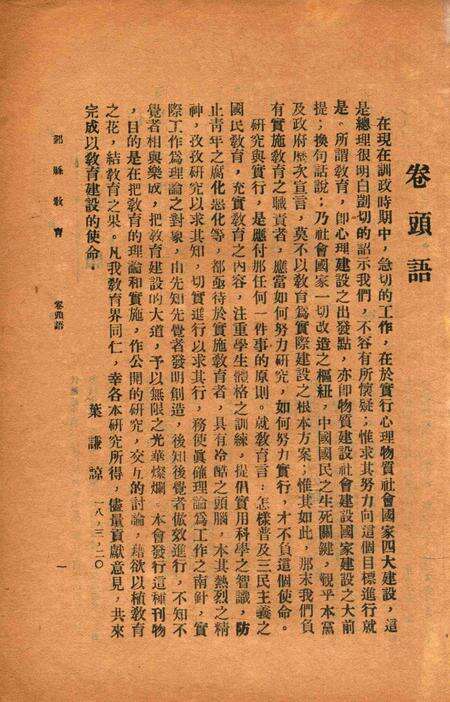 卷頭語
在現在訓政時期中，急切的工作，在於實行心理物質社會國家四大建設，這
是總理很明白剴切的詔示我們，不容有所懷疑；惟求其努力向這個目標進行就
是。所謂教育，卽心理建設之出發點，亦卽物質建設社會建設國家建設之大前
提；換句話說；乃社會國家一切改造之樞紐，中國國民之生死關鍵，觀乎本黨
及政府歷次宣言，莫不以教育為實際建設之根本方案；惟其如此，那末我們負
有實施教育之職責者，應當如何努力研究，如何努力實行，才不負這個使命。
研究與實行，是應付那任何一件事的原則。就教育言：怎樣普及三民主義之
國民教育，充實教育之內容，注重學生體格之訓練，提倡實用科學之智識，防
止青年之腐化惡化等，都亟待於實施教育者，具有冷酷之頭腦，本其熱烈之精
神，孜孜研究以求其知，切實進行以求其行，務使眞確理論為工作之南針，實
際工作為理論之對象，由先知先覺者發明創造，後知後覺者倣效進行，不知不
覺者相與樂成，把教育建設的大道，予以無限之光華燦爛。本會發行這種刊物
，目的是在把教育的理論和實施，作公開的研究，交互的討論，藉欲以植教育
之花，結教育之果。凡我教育界同仁，幸各本研究所得，儘量貢獻意見，共來
完成以教育建設的使命。
葉謙諒 一八，三，二〇
縣教育 卷頭語 一